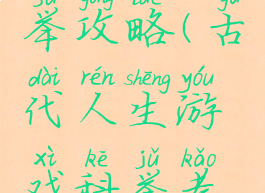 举攻略(古
dài rén shēng yóu
代人生游
xì kē jǔ kǎo
戏科举考